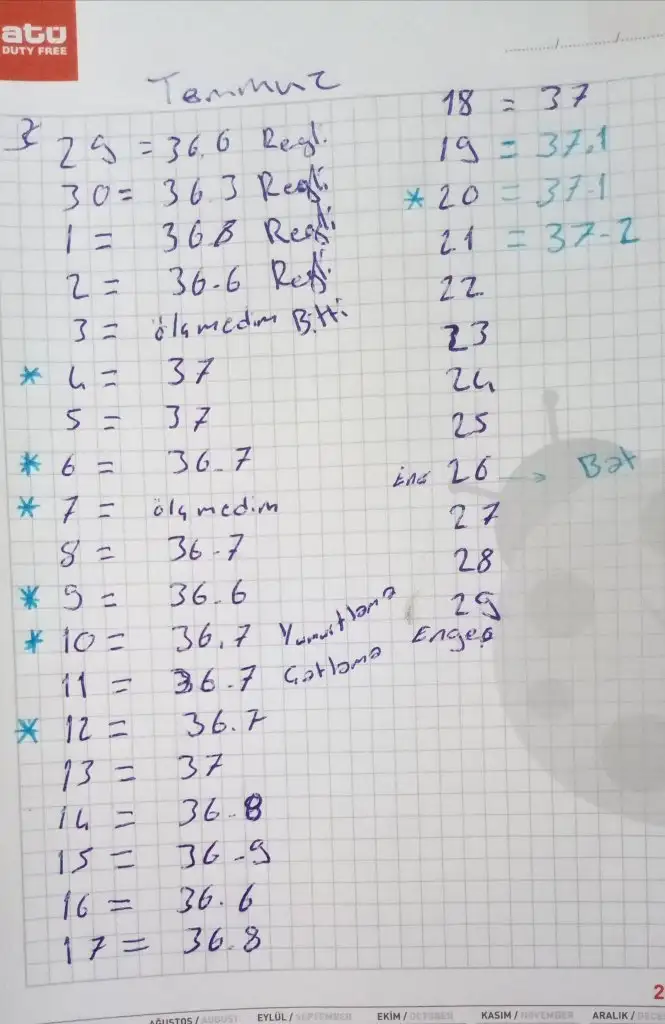 atü
DUTY FREE
Temmuz
29 = 36.6 Regl.
30 = 36.3 Regli
1 = 36.8 Regli
2 = 36.6 Regli
3 = ölçmedim Bitti
* 4 = 37
5 = 37
* 6 = 36.7
* 7 = ölçmedim
8 = 36.7
* 9 = 36.6
* 10 = 36.7 Yumurtlama
11 = 36.7 Çatlama
* 12 = 36.7
13 = 37
14 = 36.8
15 = 36.9
16 = 36.6
17 = 36.8
18 = 37
19 = 37.1
* 20 = 37.1
21 = 37.2
22
23
24
25
26 →
27
28
29
Engeç
2
AĞUSTOS / AUGUST EYLÜL / SEPTEMBER EKİM / OCTOBER KASIM / NOVEMBER ARALIK / DECE